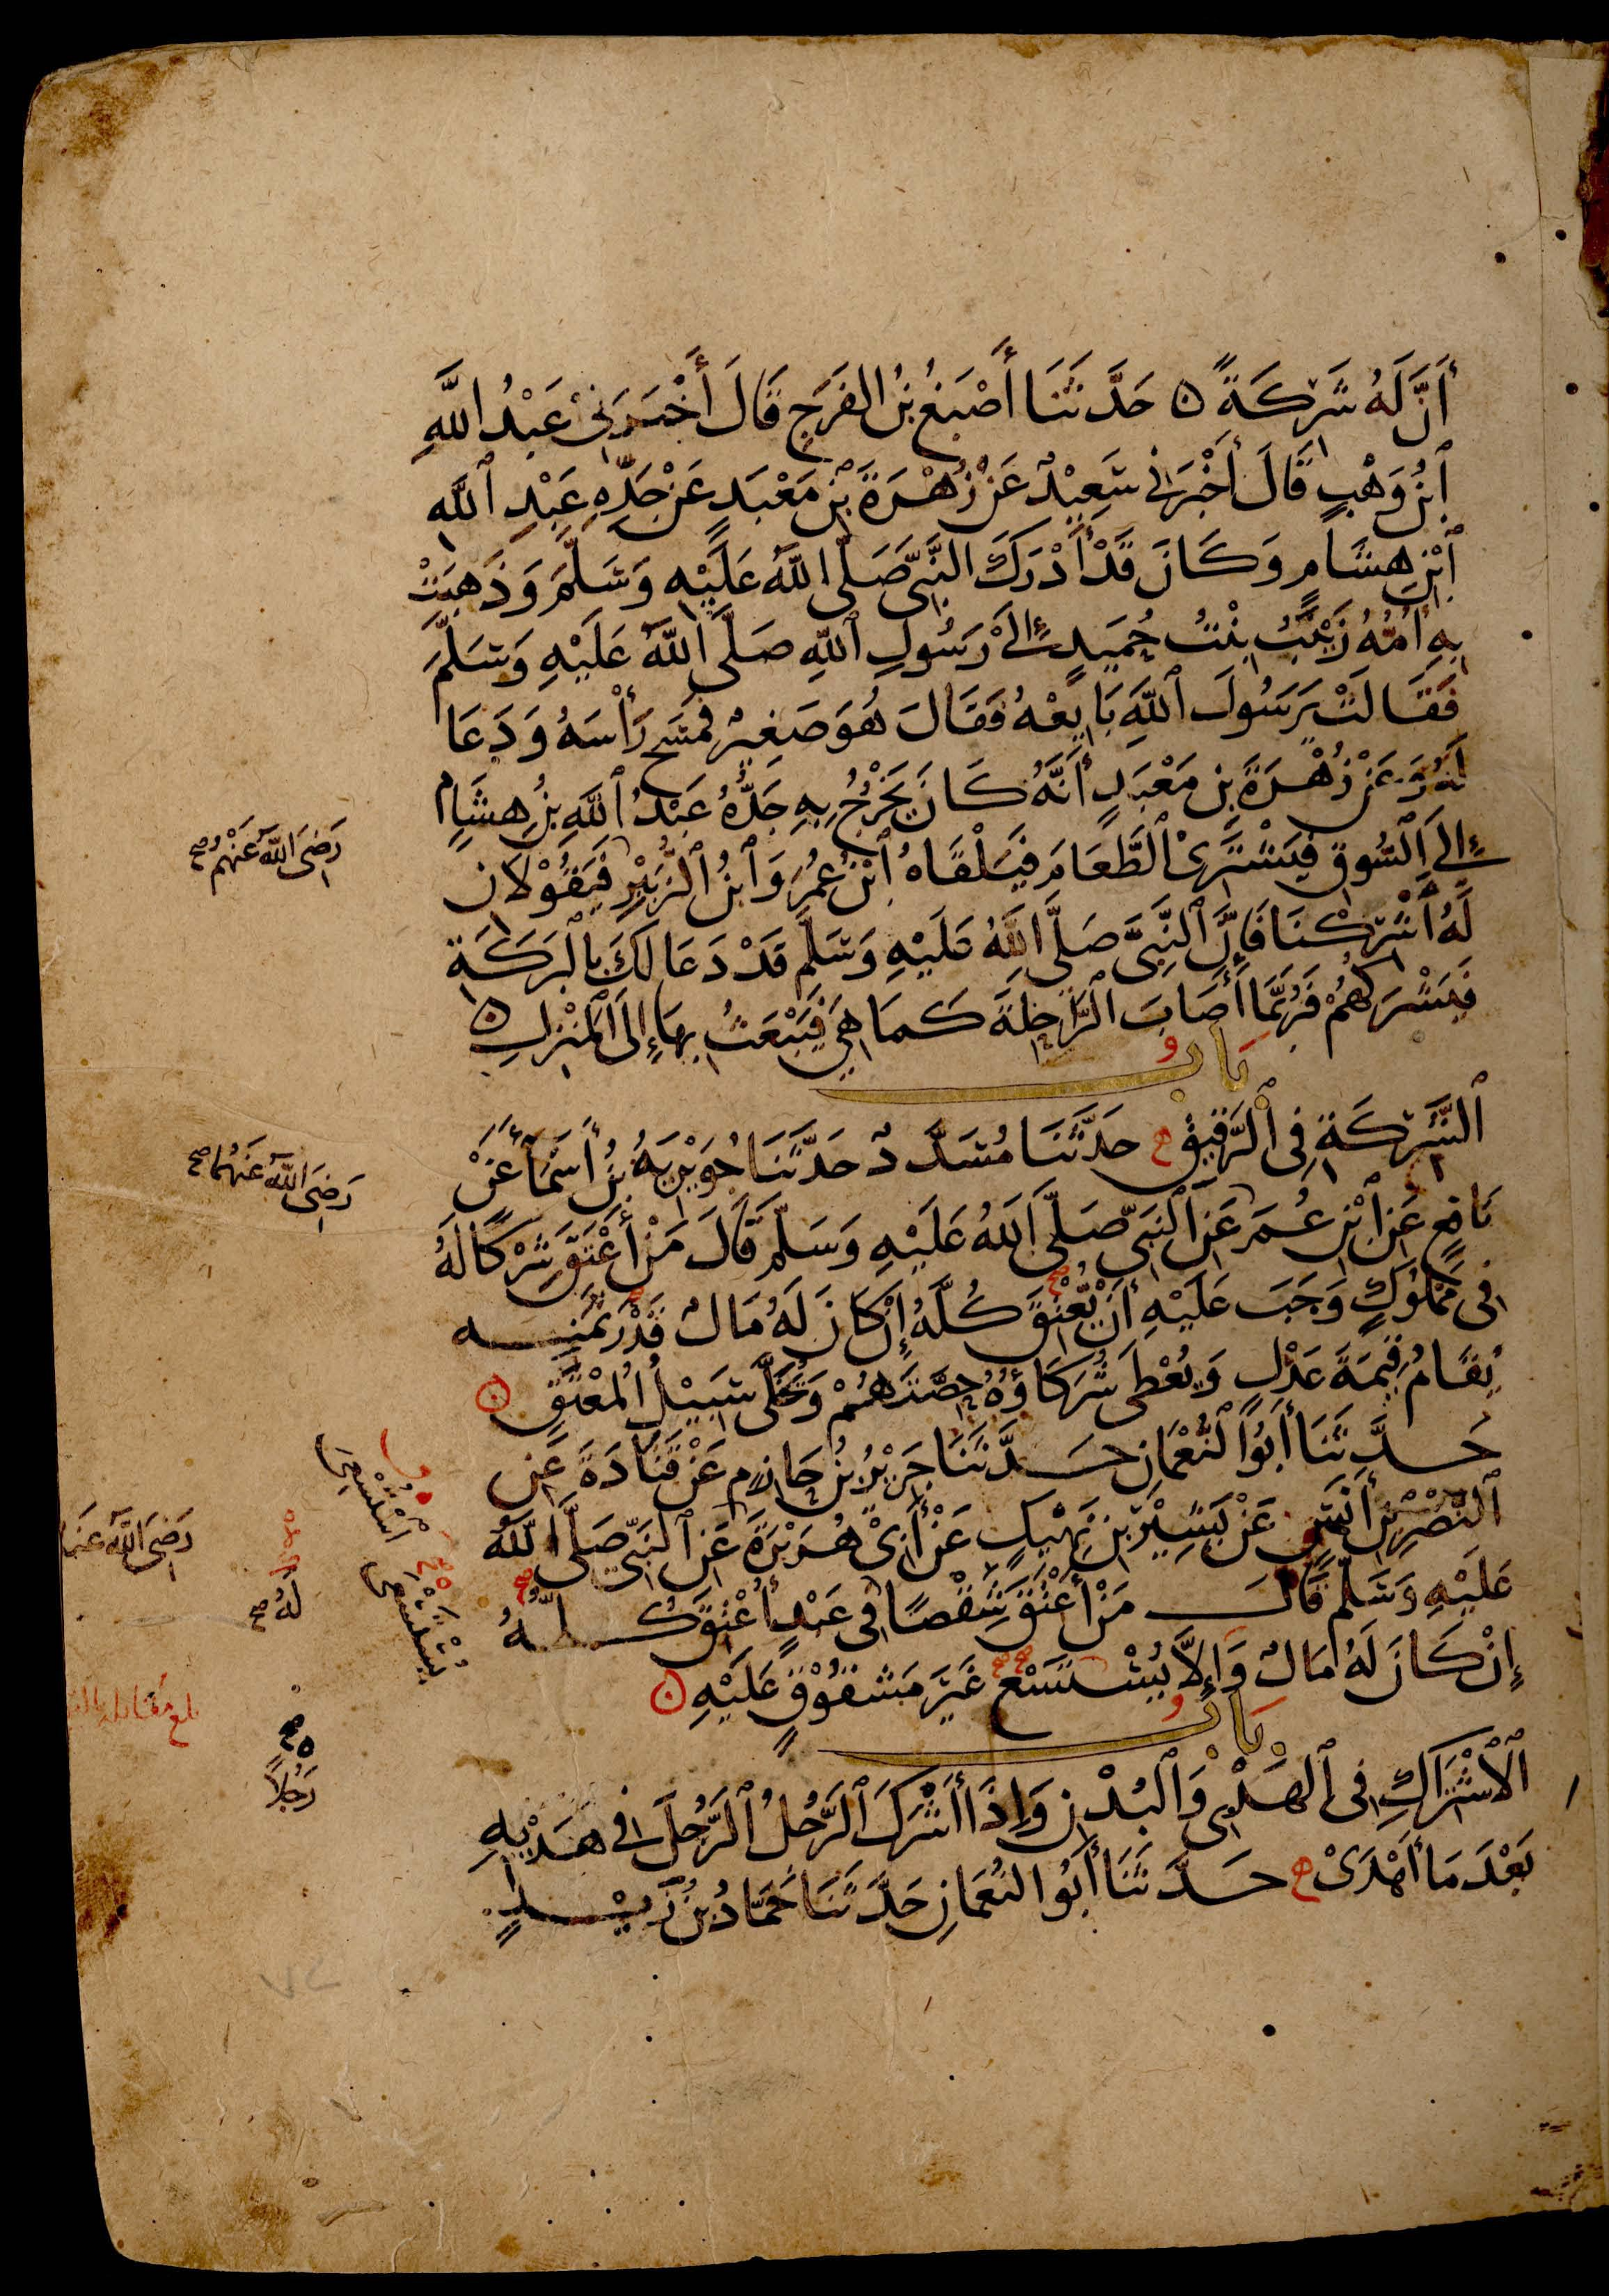 أَنَّ لَهُ شَرِكَةً ه حَدَّثَنَا أَصْبَغُ بْنُ الفَرَجِ قَالَ أَخْبَرَنِي عَبْدُ اللَّهِ
ٱبْنُ وَهْبٍ قَالَ أَخْبَرَنِي سَعِيْدٌ عَنْ زُهْرَةَ بْنِ مَعْبَدٍ عَنْ جَدِّهِ عَبْدِ ٱللَّهِ
ٱبْنِ هِشَامٍ وَكَانَ قَدْ أَدْرَكَ النَّبِيَّ صَلَّى اللَّهُ عَلَيْهِ وَسَلَّمَ وَذَهَبَتْ
بِهِ أُمُّهُ زَيْنَبُ بِنْتُ حُمَيدٍ إِلَى رَسُولِ ٱللَّهِ صَلَّى اللَّهُ عَلَيْهِ وَسَلَّمَ
فَقَالَتْ يَرَسُولَ ٱللَّهِ بَايِعْهُ فَقَالَ هُوَ صَغِيرٌ فَمَسَحَ رَأْسَهُ وَدَعَا
لَهُ وَعَنْ زُهْرَةَ بْنِ مَعْبَدٍ أَنَّهُ كَانَ يَخْرُجُ بِهِ جَدُّهُ عَبْدُ ٱللَّهِ بْنُ هِشَامٍ
إِلَى ٱلسُّوقِ فَيَشْتَرِيْ ٱلطَّعَامَ فَيَلْقَاهُ ٱبْنُ عُمَرَ وَٱبْنُ ٱلزُّبَيْرِ فَيَقُوْلَانِ
رَضِيَ اللَّهُ عَنْهُمْ صح
لَهُ أَشْرِكْنَا فَإِنَّ ٱلنَّبِيَّ صَلَّى اللَّهُ عَلَيْهِ وَسَلَّمَ قَدْ دَعَا لَكَ بِالْبَرَكَةِ
فَيَشْرَكُهُمْ فَرُبَّمَا أَصَابَ ٱلرَّاحِلَةَ كَمَا هِيَ فَيَبْعَثُ بِهَا إِلَى ٱلْمَنْزِلِ ه
بَابُ
ٱلشَّرِكَةِ فِي ٱلرَّقِيْقِ ح حَدَّثَنَا مُسَدَّدٌ حَدَّثَنَا جُوَيْرِيَةُ بْنُ أَسْمَاءَ عَنْ
نَافِعٍ عَنِ ٱبْنِ عُمَرَ عَنِ ٱلنَّبِيِّ صَلَّى اللَّهُ عَلَيْهِ وَسَلَّمَ قَالَ مَنْ أَعْتَقَ شِرْكًا لَهُ
رَضِيَ اللَّهُ عَنْهُمَا صح
فِي مَمْلُوكٍ وَجَبَ عَلَيْهِ أَنْ يُعْتِقَ كُلَّهُ إِنْ كَانَ لَهُ مَالٌ قَدْرَ ثَمَنِهِ
يُقَامُ قِيْمَةَ عَدْلٍ وَيُعْطَى شُرَكَاؤُهُ حِصَّتَهُمْ وَيُخَلَّى سَبِيْلُ الْمُعْتَقِ ه
حَدَّثَنَا أَبُو ٱلنُّعْمَانِ حَدَّثَنَا جَرِيْرُ بْنُ حَازِمٍ عَنْ قَتَادَةَ عَنِ
ٱلنَّضْرِ بْنِ أَنَسٍ عَنْ بَشِيْرِ بْنِ نَهِيْكٍ عَنْ أَبِيْ هُرَيْرَةَ عَنِ ٱلنَّبِيِّ صَلَّى اللَّهُ
رَضِيَ اللَّهُ عَنْهُ
عَلَيْهِ وَسَلَّمَ قَالَ مَنْ أَعْتَقَ شِقْصًا فِي عَبْدٍ أُعْتِقَ كُلُّهُ
لَهُ صح
إِنْ كَانَ لَهُ مَالٌ وَإِلَّا يُسْتَسْعَ غَيْرَ مَشْقُوْقٍ عَلَيْهِ ه
اسْتُسْعِيَ
يُسْتَسْعَى
بلغ مقابلة
بَابُ
ٱلِاشْتِرَاكِ فِي ٱلْهَدْيِ وَٱلْبُدْنِ وَإِذَا أَشْرَكَ ٱلرَّجُلُ ٱلرَّجُلَ فِي هَدْيِهِ
رَجُلاً
بَعْدَ مَا أَهْدَىْ ح حَدَّثَنَا أَبُو النُّعْمَانِ حَدَّثَنَا حَمَّادُ بْنُ زَيْدٍ